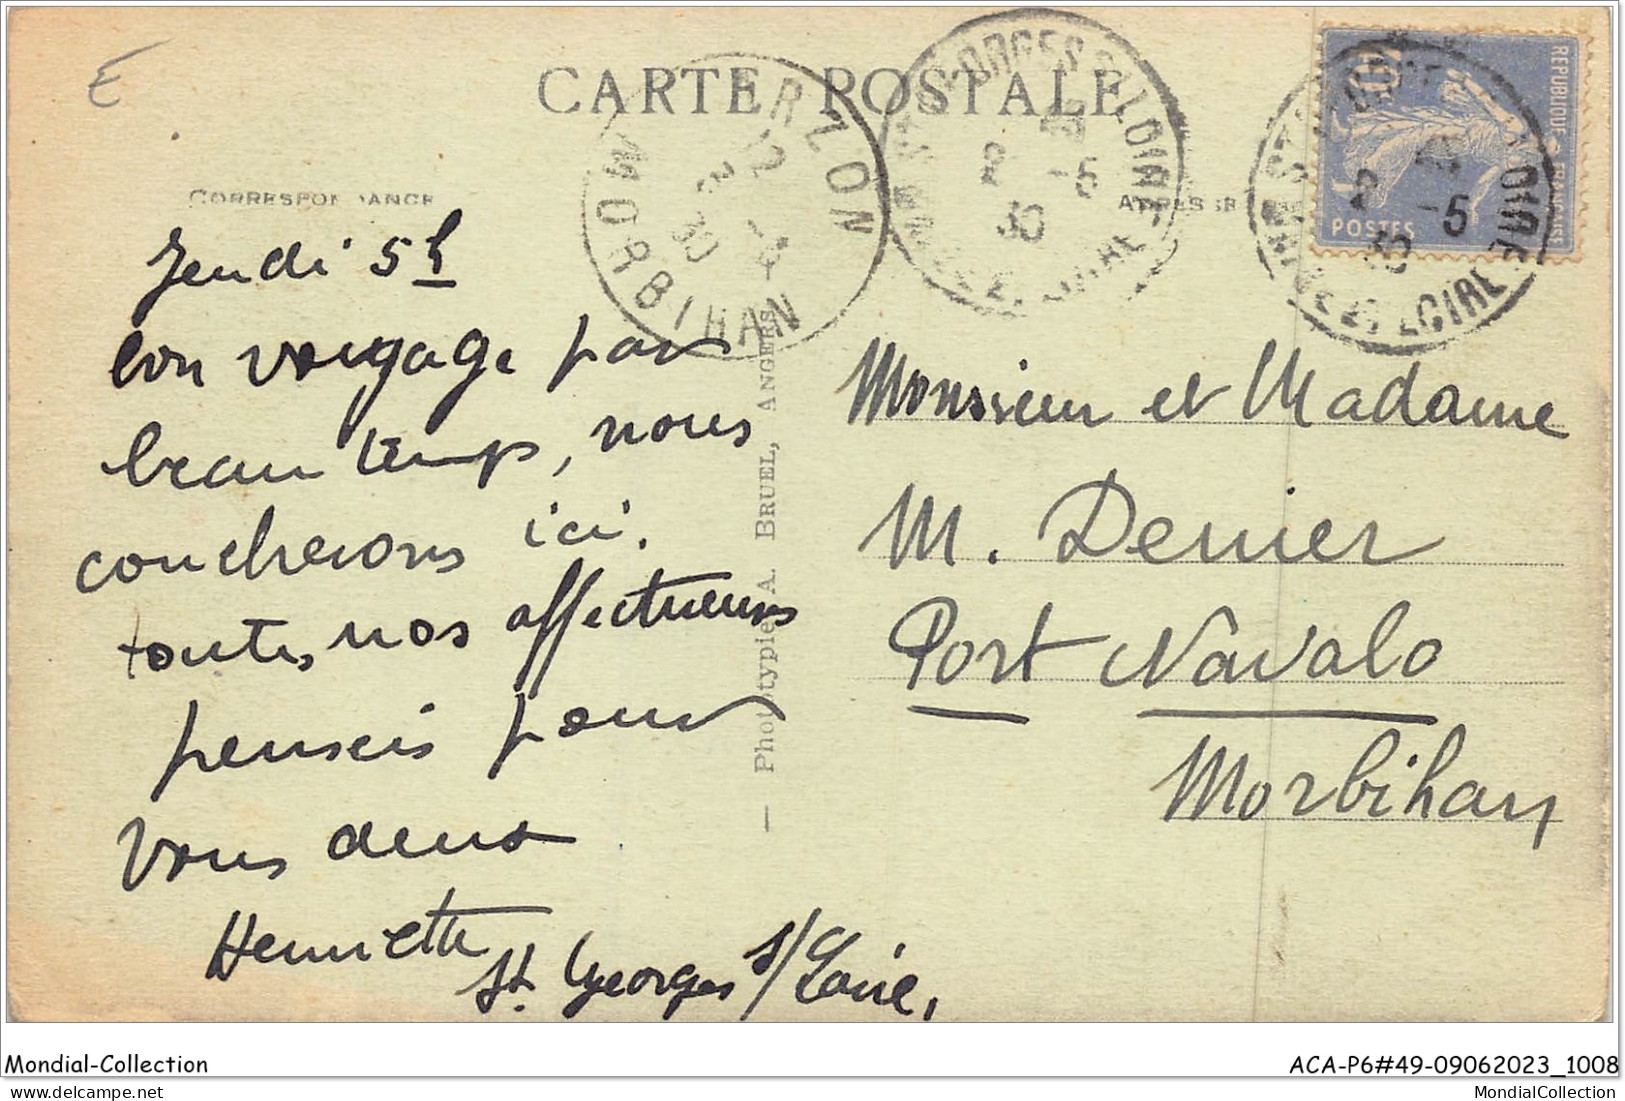 E
CARTE POSTALE
CORRESPONDANCE
ADRESSE
ARZON
12
2-5
30
MORBIHAN
ST GEORGES S LOIRE
2 -5
30
MAINE ET LOIRE
ST GEORGES S LOIRE
2 -5
30
MAINE ET LOIRE
40c
REPUBLIQUE FRANÇAISE
POSTES
Jeudi 5h
bon voyage par
beau temps, nous
coucherons ici.
toutes nos affectueuses
pensées pour
vous deux
Henriette
St. Georges s/Loire,
Phototypie A. BRUEL, ANGERS
Monsieur et Madame
M. Denier
Port Navalo
Morbihan
Mondial-Collection
ACA-P6#49-09062023_1008
delcampe.net
MondialCollection